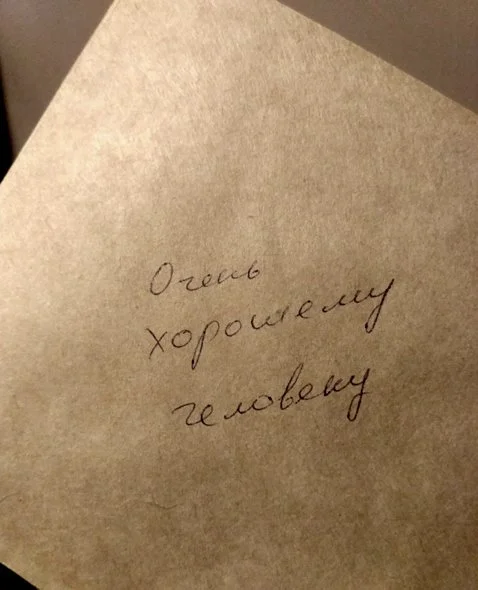 Очень
хорошему
человеку